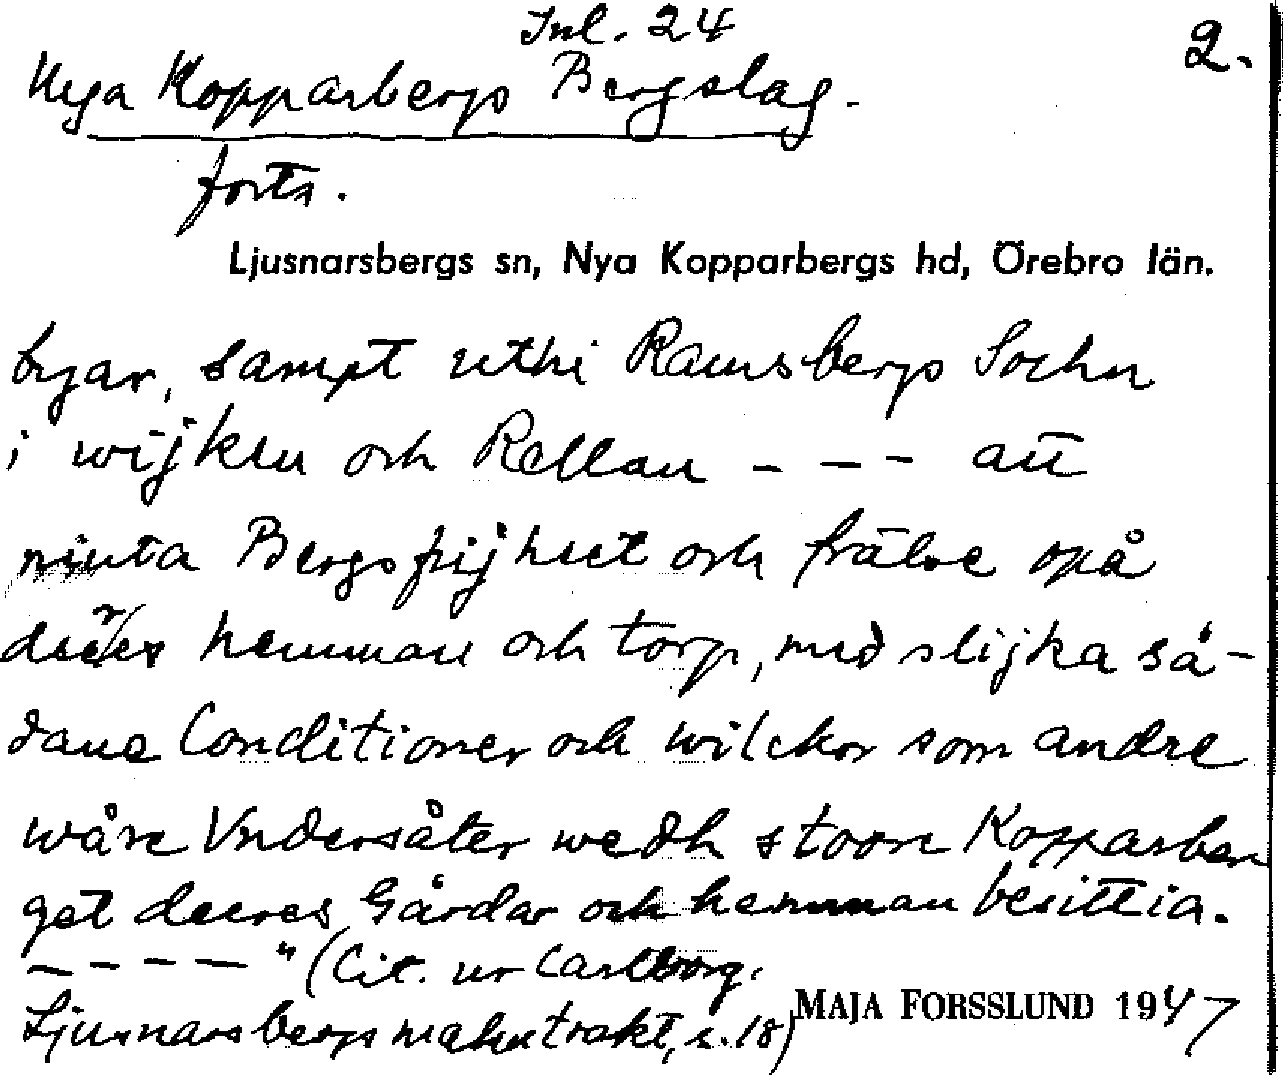 Inl. 24
2.
Nya Kopparbergs Bergslag.
forts.
Ljusnarsbergs sn, Nya Kopparbergs hd, Örebro län.
byar, sampt uthi Ramsbergs Sochn
i wijken och Rellan - - - att
niuta Bergsfrijheet och frälse opå
deeres hemman och torp, med slijka så-
dane Conditioner och wilckor som andre
wåre Vndersåter wedh stoore Kopparber
get deeres Gårdar och hemman besittia.
- - - - " (Cit. ur Carlborg.
Ljusnarsbergs malmtrakt, s. 18)
MAJA FORSSLUND 1947